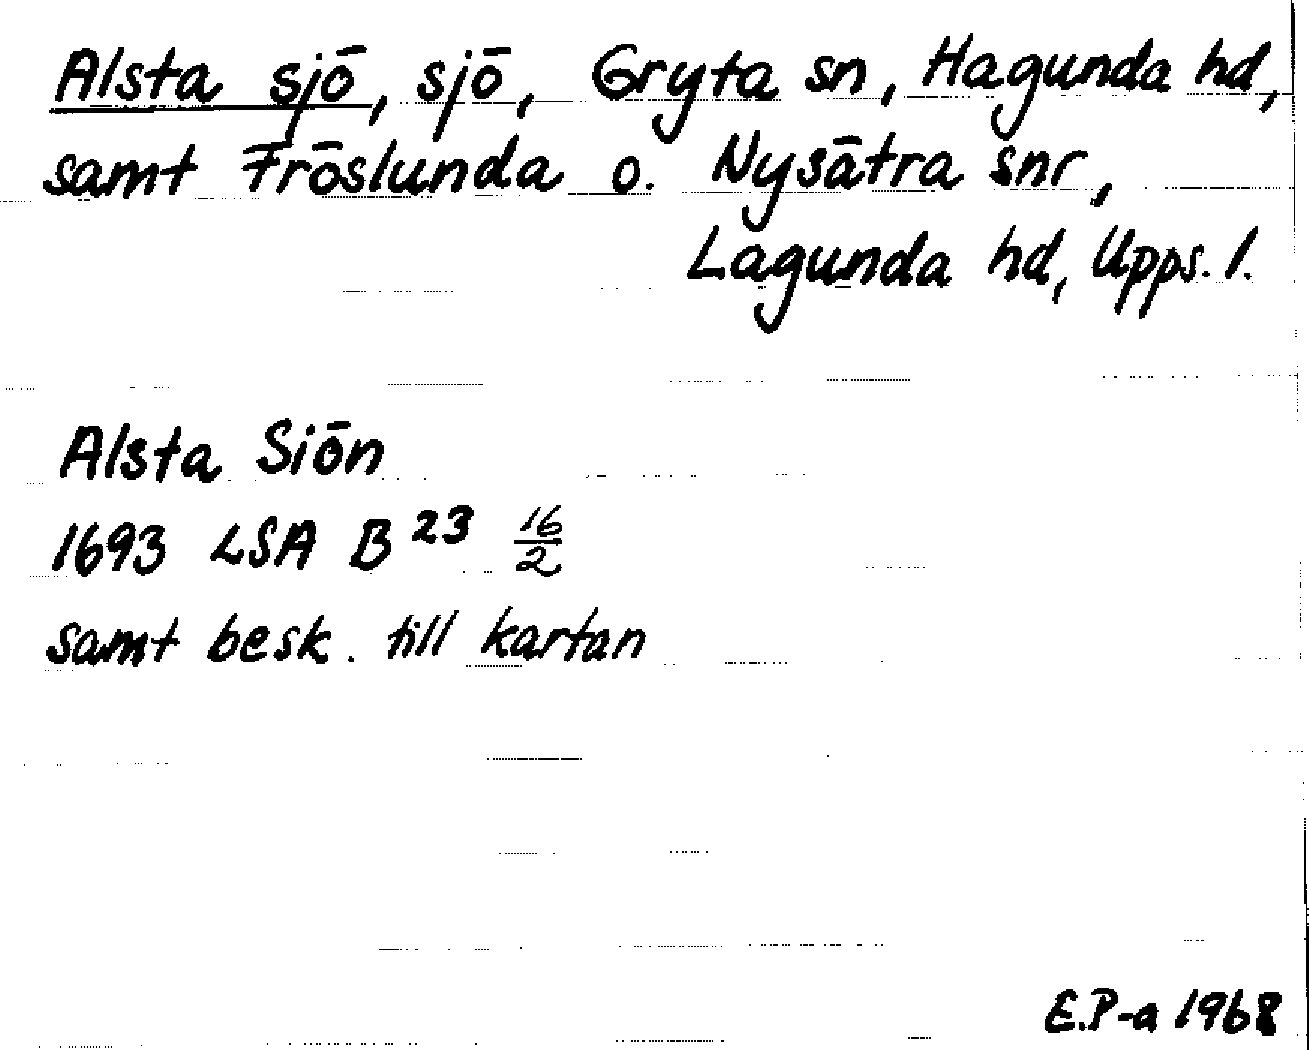 Alsta sjö, sjö, Gryta sn, Hagunda hd,
samt Fröslunda o. Nysätra snr,
Lagunda hd, Upps. l.
Alsta Siön
1693 LSA B 23 16/2
samt besk. till kartan
E.P-a 1968